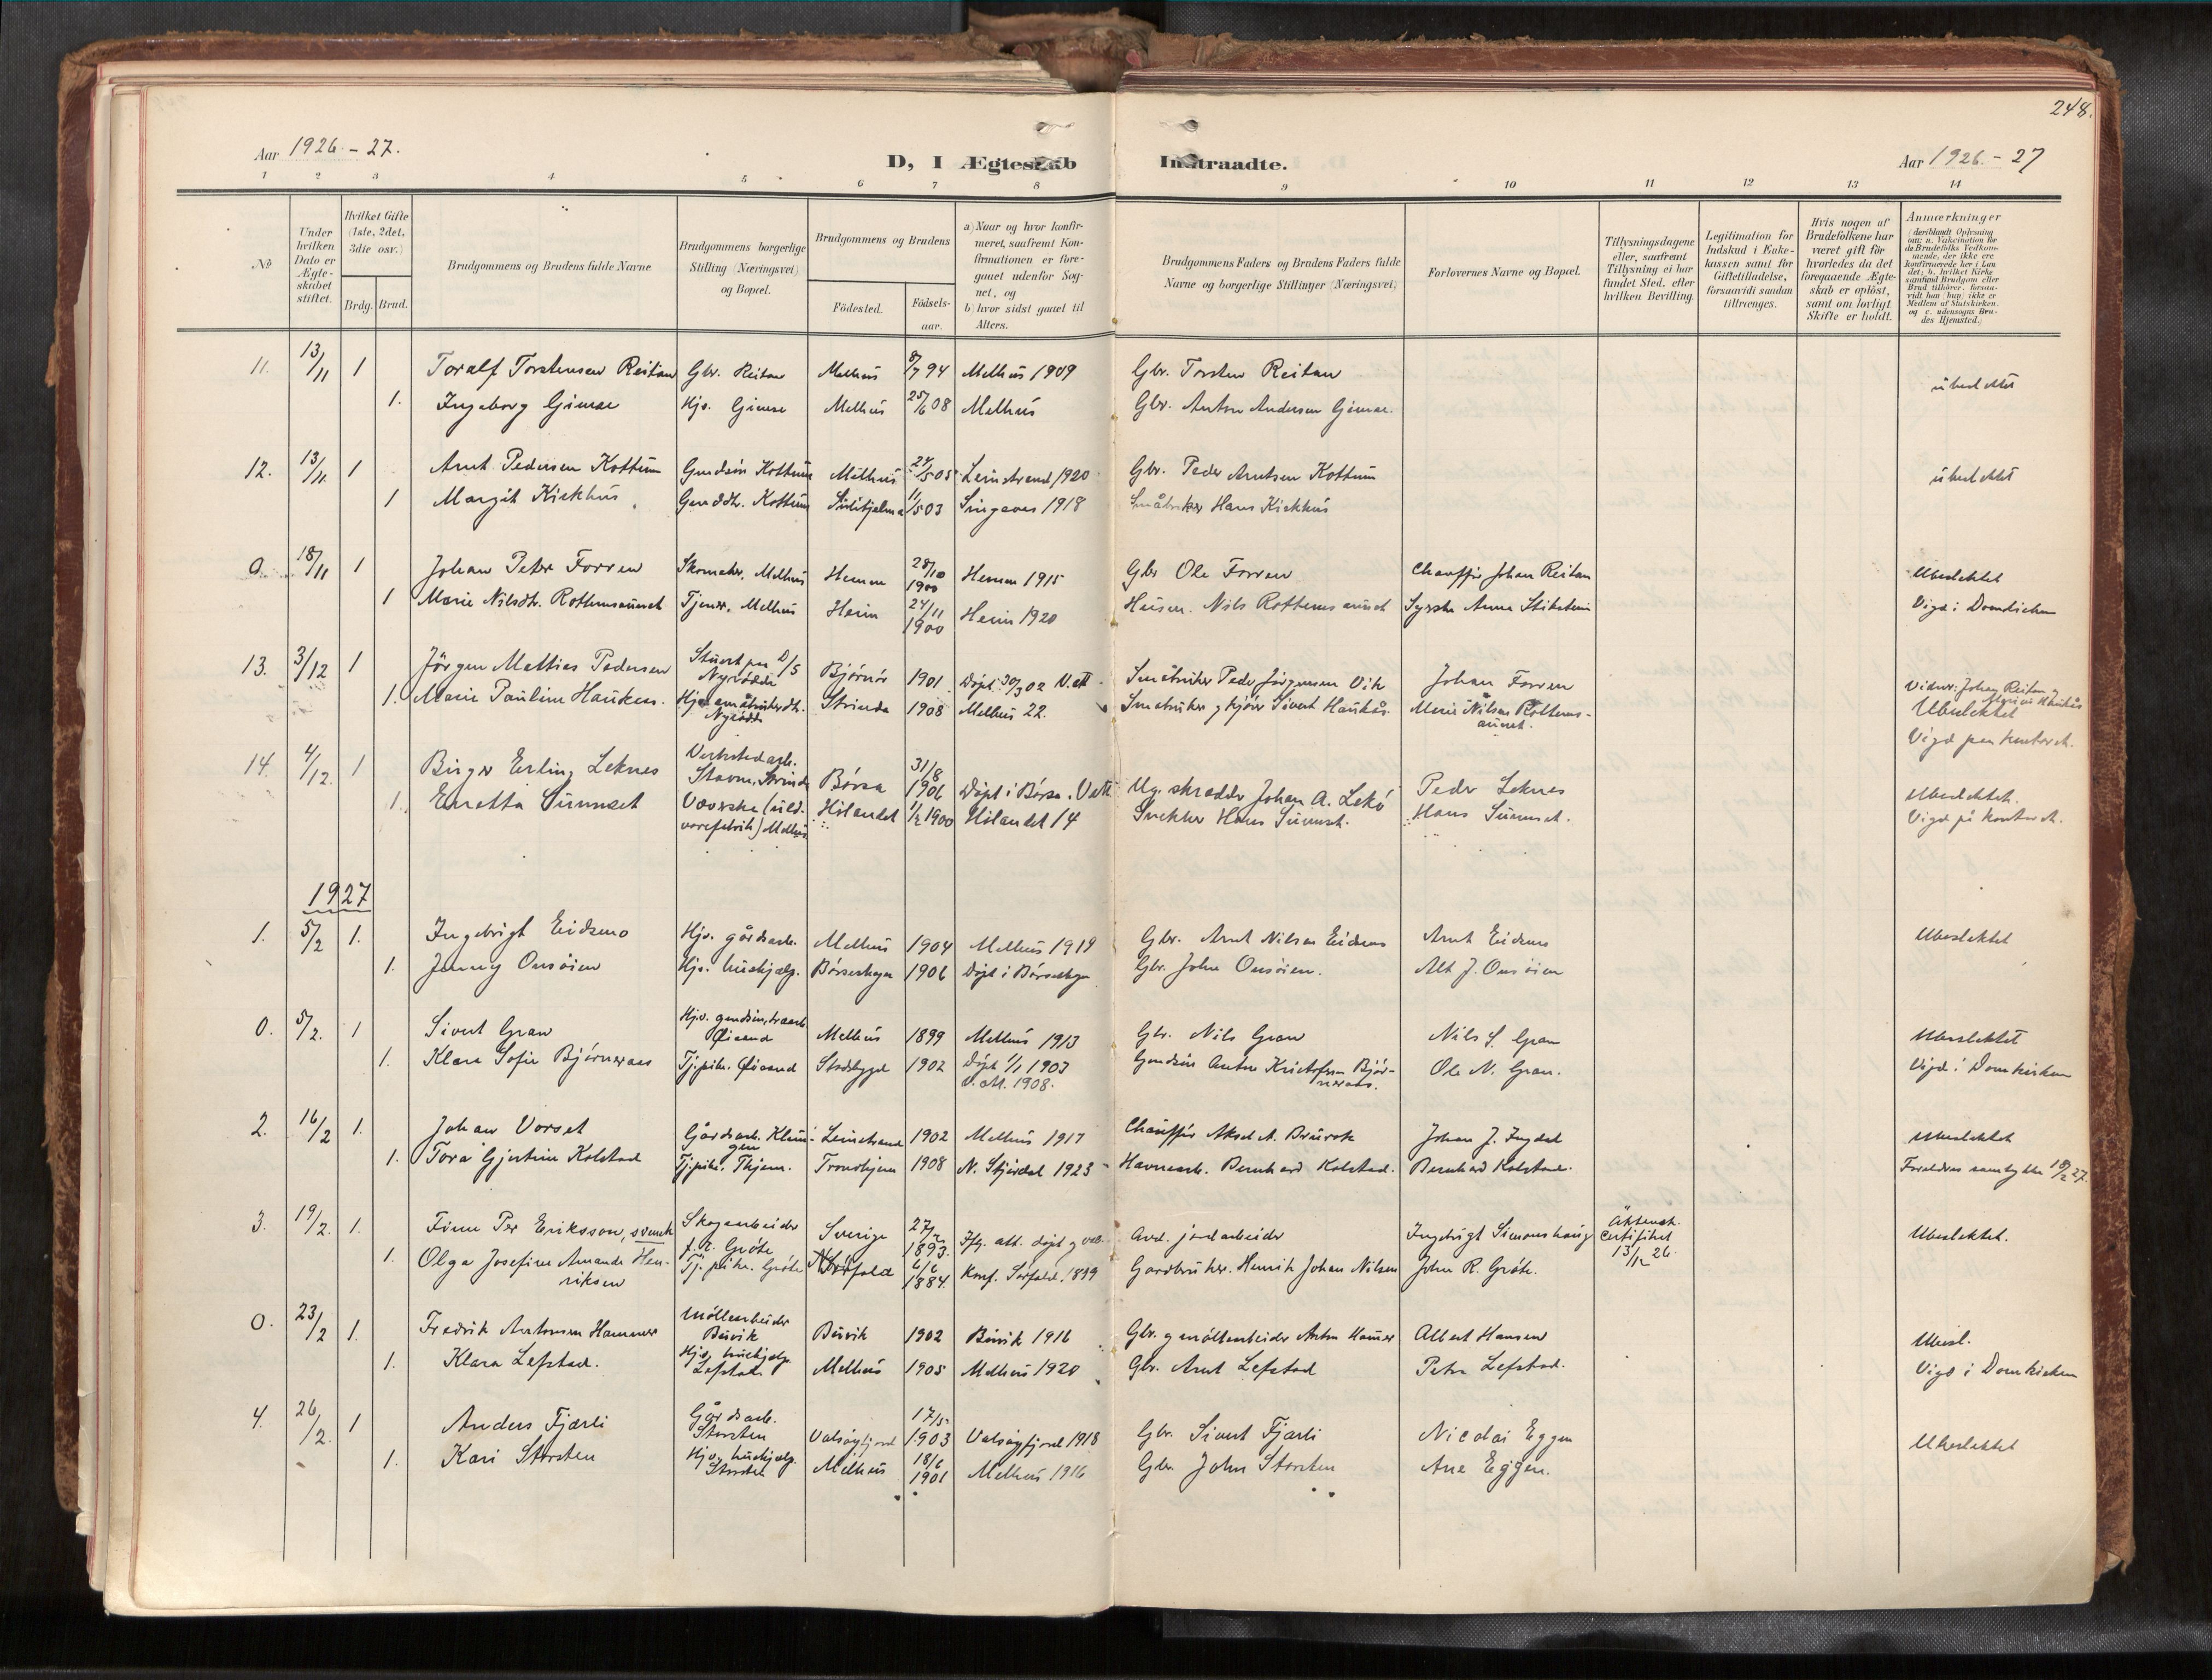 248.
Aar 1926 - 27.
D, I Ægteskab Indtraadte.
Aar 1926 - 27
1 2 3 4 5 6 7 8 9 10 11 12 13 14
No
Under hvilken Dato er Ægteskabet stiftet.
Hvilket Gifte (1ste, 2det, 3die osv.)
Brdg. Brud.
Brudgommens og Brudens fulde Navne
Brudgommens borgerlige Stilling (Næringsvei) og Bopæl.
Brudgommens og Brudens
Födested. Födsels-aar.
a) Naar og hvor konfirmeret, saafremt Konfirmationen er foregaaet udenfor Sognet, og
b) hvor sidst gaaet til Alters.
Brudgommens Faders og Brudens Faders fulde Navne og borgerlige Stillinger (Næringsvei)
Forlovernes Navne og Bopæl.
Tillysningsdagene eller, saafremt Tillysning ei har fundet Sted, efter hvilken Bevilling.
Legitimation for Indskud i Enkekassen samt for Giftetilladelse, forsaavidt saadan tiltrænges.
Hvis nogen af Brudefolkene har været gift för hvorledes da det foregaaende Ægteskab er oplöst, samt om lovligt Skifte er holdt.
Anmærkninger (deriblandt Oplysning om: a. Vakcination for de Brudefolks Vedkommende, der ikke ere konfirmerede her i Landet; b. hvilket Kirkesamfund Brudgom eller Brud tilhörer, forsaavidt han (hun) ikke er Medlem af Statskirken, og c. udensogns Brudes Hjemsted.)
11. 13/11 1 Toralf Torstensen Reitan Gbr. Reitan Melhus 8/7 94 Melhus 1909 Gbr. Torsten Reitan ubeslektet
1. Ingeborg Gimse Hjv. Gimse Melhus 25/6 08 Melhus Gbr. Anton Andersen Gimse.
12. 13/11 1 Arnt Pedersen Kottum Gmdsön Kottum Melhus 24/5 05 Leinstrand 1920 Gbr. Peder Arntsen Kottum ubeslektet
1 Margit Kirkhus Kottum Sulitjelma 11/5 03 Singsaas 1918 Småbruker Hans Kirkhus
0. 18/11 1 Johan Peter Forren Skomaker, Melhus Hemne 28/10 1900 Hemne 1915 Gbr Ole Forren Chauffør Johan Reitan Ubeslektet
1 Marie Nilsdtr. Rottemsaunet Tjener, Melhus Heim 24/11 1900 Heim 1920 Husm. Nils Rottemsaunet Syerske Anna Vigd i Domkirken
13. 3/12 1 Jörgen Mathias Pedersen Stuert paa D/S Björnör 1901 Döpt 30/3 02 V.att. Småbruker Peder Jörgensen Vik Johan Forren Vidner: Johan Reitan og
1. Marie Pauline Haukaas. Hjv. småbrukerdtr. Strinda 1908 Melhus 22. Småbruker og kjörer Sivert Haukås. Marie Nilsen Rottemsaunet. Ubeslektet
Vigd paa kontoret.
14. 4/12. 1 Birger Erling Leknes Verkstedarb. Stavne, Strinda Börsa 31/8 1906 Döpt i Börsa. V.att. Ug. skredder Johan A. Lekö Peder Leknes Ubeslektet.
1. Enretta Sunnset Væverske (uldvarefabrik) Melhus Hölandet 11/2 1900 Hölandet 14 Snekker Hans Sunnset. Hans Sunnset. Vigd på kontoret.
1927
1. 5/2 1. Ingebrigt Eidsmo Hjv. gårdsarb. Melhus 1904 Melhus 1919 Gbr. Arnt Nilsen Eidsmo Arnt Eidsmo Ubeslektet
1. Jenny Onsöien Hjv. hushjelp. Börseskogn 1906 Döpt i Börseskogn Gbr. John Onsöien. Alb J. Onsöien
0. 5/2. 1 Sivert Gran Hjv. gmdsön, Öisand Melhus 1899 Melhus 1913 Gbr. Nils Gran Nils S. Gran Ubeslektet
1. Klara Sofie Björneraas Tj.pike. Öisand Stadsbygd 1902 Döpt 1/1 1903 V.att. 1908. Gmdsön Anton Kristofersen Björneraas. Ole N. Gran. Vigd i Domkirken
2. 16/2 1. Johan Vorset Gårdsarb. Leinstrand 1902 Melhus 1917 Chauffør Johan J. Ingdal Ubeslektet
1. Tora Gjertine Kolstad Tj.pike. Thjem. Trondhjem 1908 N. Stjördal 1923 Havnearb. Bernhard Kolstad. Bernhard Kolstad. Foreldres samtykke 10/2 27.
3. 19/2. 1. Finn Per Eriksson, svensk Skogarbeider Gråte Sverige 27/2 1893. Iflg. att. döpt og vak. Avd. jordarbeider Ingebrigt Simonshaug Äktensk. certifikat 13/12 26. Ubeslektet.
1. Olga Josefine Amanda Henriksen Tj. pike. Gråte Sörfold 6/6 1884. Konf. Sörfold, 1899 Gardbruker. Henrik Johan Nilsen John R. Gråte.
0. 23/2 1. Fredrik Antonsen Hammer Möllearbeider Buvik Buvik 1902 Buvik 1916 Gbr. og möllearbeider Anton Hamer Albert Hansen Ubesl.
1. Klara Lefstad. Hjv. hushjelp. Lefstad. Melhus 1905 Melhus 1920 Gbr. Arnt Lefstad Peter Lefstad. Vigd i Domkirken
4. 26/2. 1 Anders Fjærli Gårdsarb. Storsten Valsöyfjord 17/5 1903 Valsöyfjord 1918 Gbr. Sivert Fjærli Nicolai Eggen Ubeslektet
1. Kari Storsten Hjv. hushjelp. Storsten Melhus 18/6 1901 Melhus 1916 Gbr. John Storsten Ane Eggen.